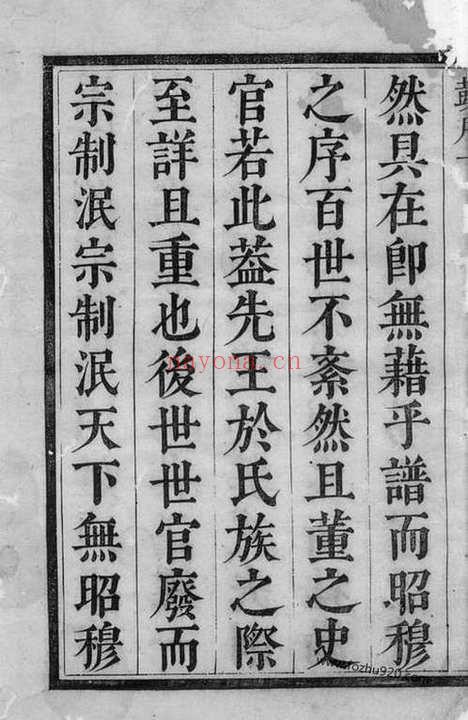 然具在卽無藉乎譜而昭穆
之序百世不紊然且董之史
官若此葢先王於氏族之際
至詳且重也後世世官廢而
宗制泯宗制泯天下無昭穆
nayona.cn